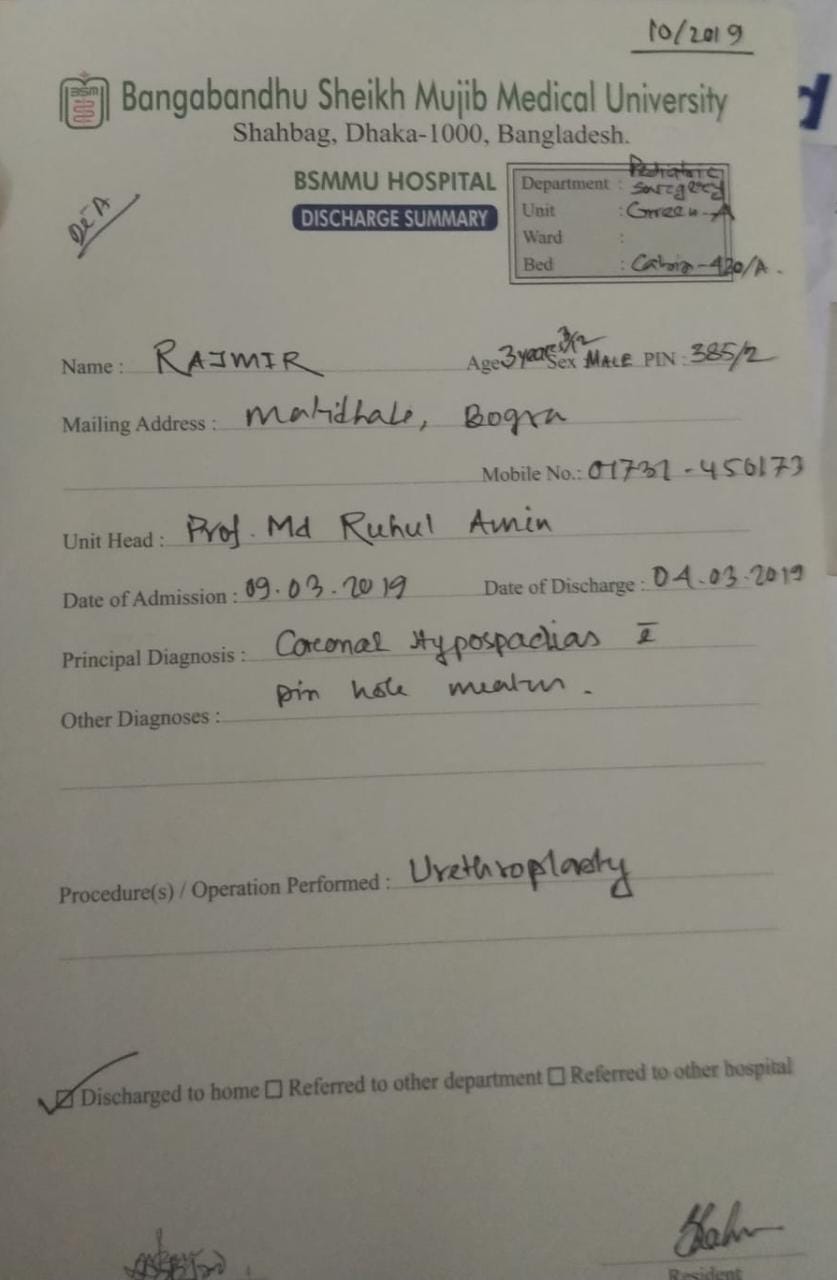 10/2019
BSM
Bangabandhu Sheikh Mujib Medical University
Shahbag, Dhaka-1000, Bangladesh.
BSMMU HOSPITAL
DISCHARGE SUMMARY
Department : Pediatric Suregery
Unit : Green-A
Ward :
Bed : Cabin-420/A.
Name : RAJMIR Age 3 years 3/12 Sex MALE PIN : 385/2
Mailing Address : Bogra
Mobile No.: 01731-456173
Unit Head : Prof. Md Ruhul Amin
Date of Admission : 09.03.2019 Date of Discharge : 04.03.2019
Principal Diagnosis : Coronal Hypospadias c̄
pin hole meatus.
Other Diagnoses :
Procedure(s) / Operation Performed : Urethroplasty
Discharged to home Referred to other department Referred to other hospital
Resident